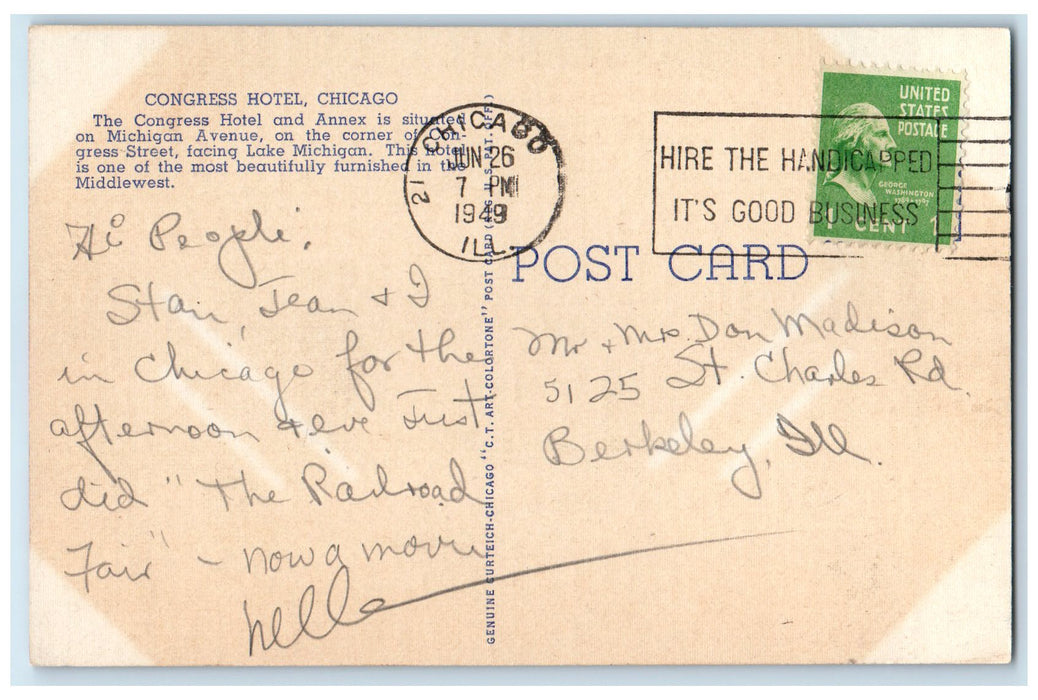 CONGRESS HOTEL, CHICAGO
The Congress Hotel and Annex is situated
on Michigan Avenue, on the corner of Con-
gress Street, facing Lake Michigan. This hotel
is one of the most beautifully furnished in the
Middlewest.
CHICAGO 21
JUN 26
7 PM
1949
ILL.
HIRE THE HANDICAPPED
IT'S GOOD BUSINESS
UNITED
STATES
POSTAGE
GEORGE
WASHINGTON
1789-1797
1 CENT 1
POST CARD
GENUINE CURTEICH-CHICAGO "C.T. ART-COLORTONE" POST CARD (REG. U.S. PAT. OFF.)
Hi People:
Stan, Jean & I
in Chicago for the
afternoon & eve Just
did "The Railroad
Fair" - now a movie
Nella
Mr & Mrs. Don Madison
5125 St. Charles Rd.
Berkeley, Ill.